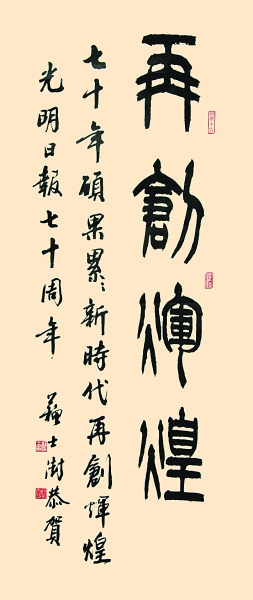 再創輝煌
七十年碩果累々新時代再創輝煌
光明日報七十周年
蘇士澍恭賀